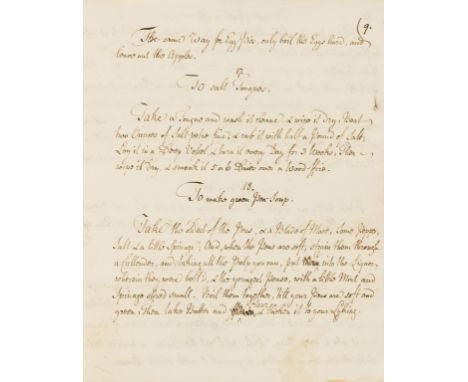 (9.
The same Way for Egg Pies, only boil the Eggs hard, and
leave out the Apples.
To salt Tongues.
Take a Tongue and wash it cleane & wipe it dry, Beat
two Ounces of Salt-petre fine, & rub it with half a Pound of Salt,
Lay it in a Vessel, & turn it every Day for 3 Weeks; Then
wipe it dry, & smoak it 5 or 6 over a Wood-ffire.
13.
To make green Peas Soup.
Take the Dust of the Peas, or a Blade of Mace, some Pepper,
Salt & a little Spring; And, when the Peas are soft, strain them through
a Cullender, and taking all the Pulp you can, put them into the Liquor,
wherein they were boil'd, & the youngest Peas, with a little Mint and
Spring small. Boil them together, till your Peas are soft and
green; Then take Butter and & thicken it to your Liking.